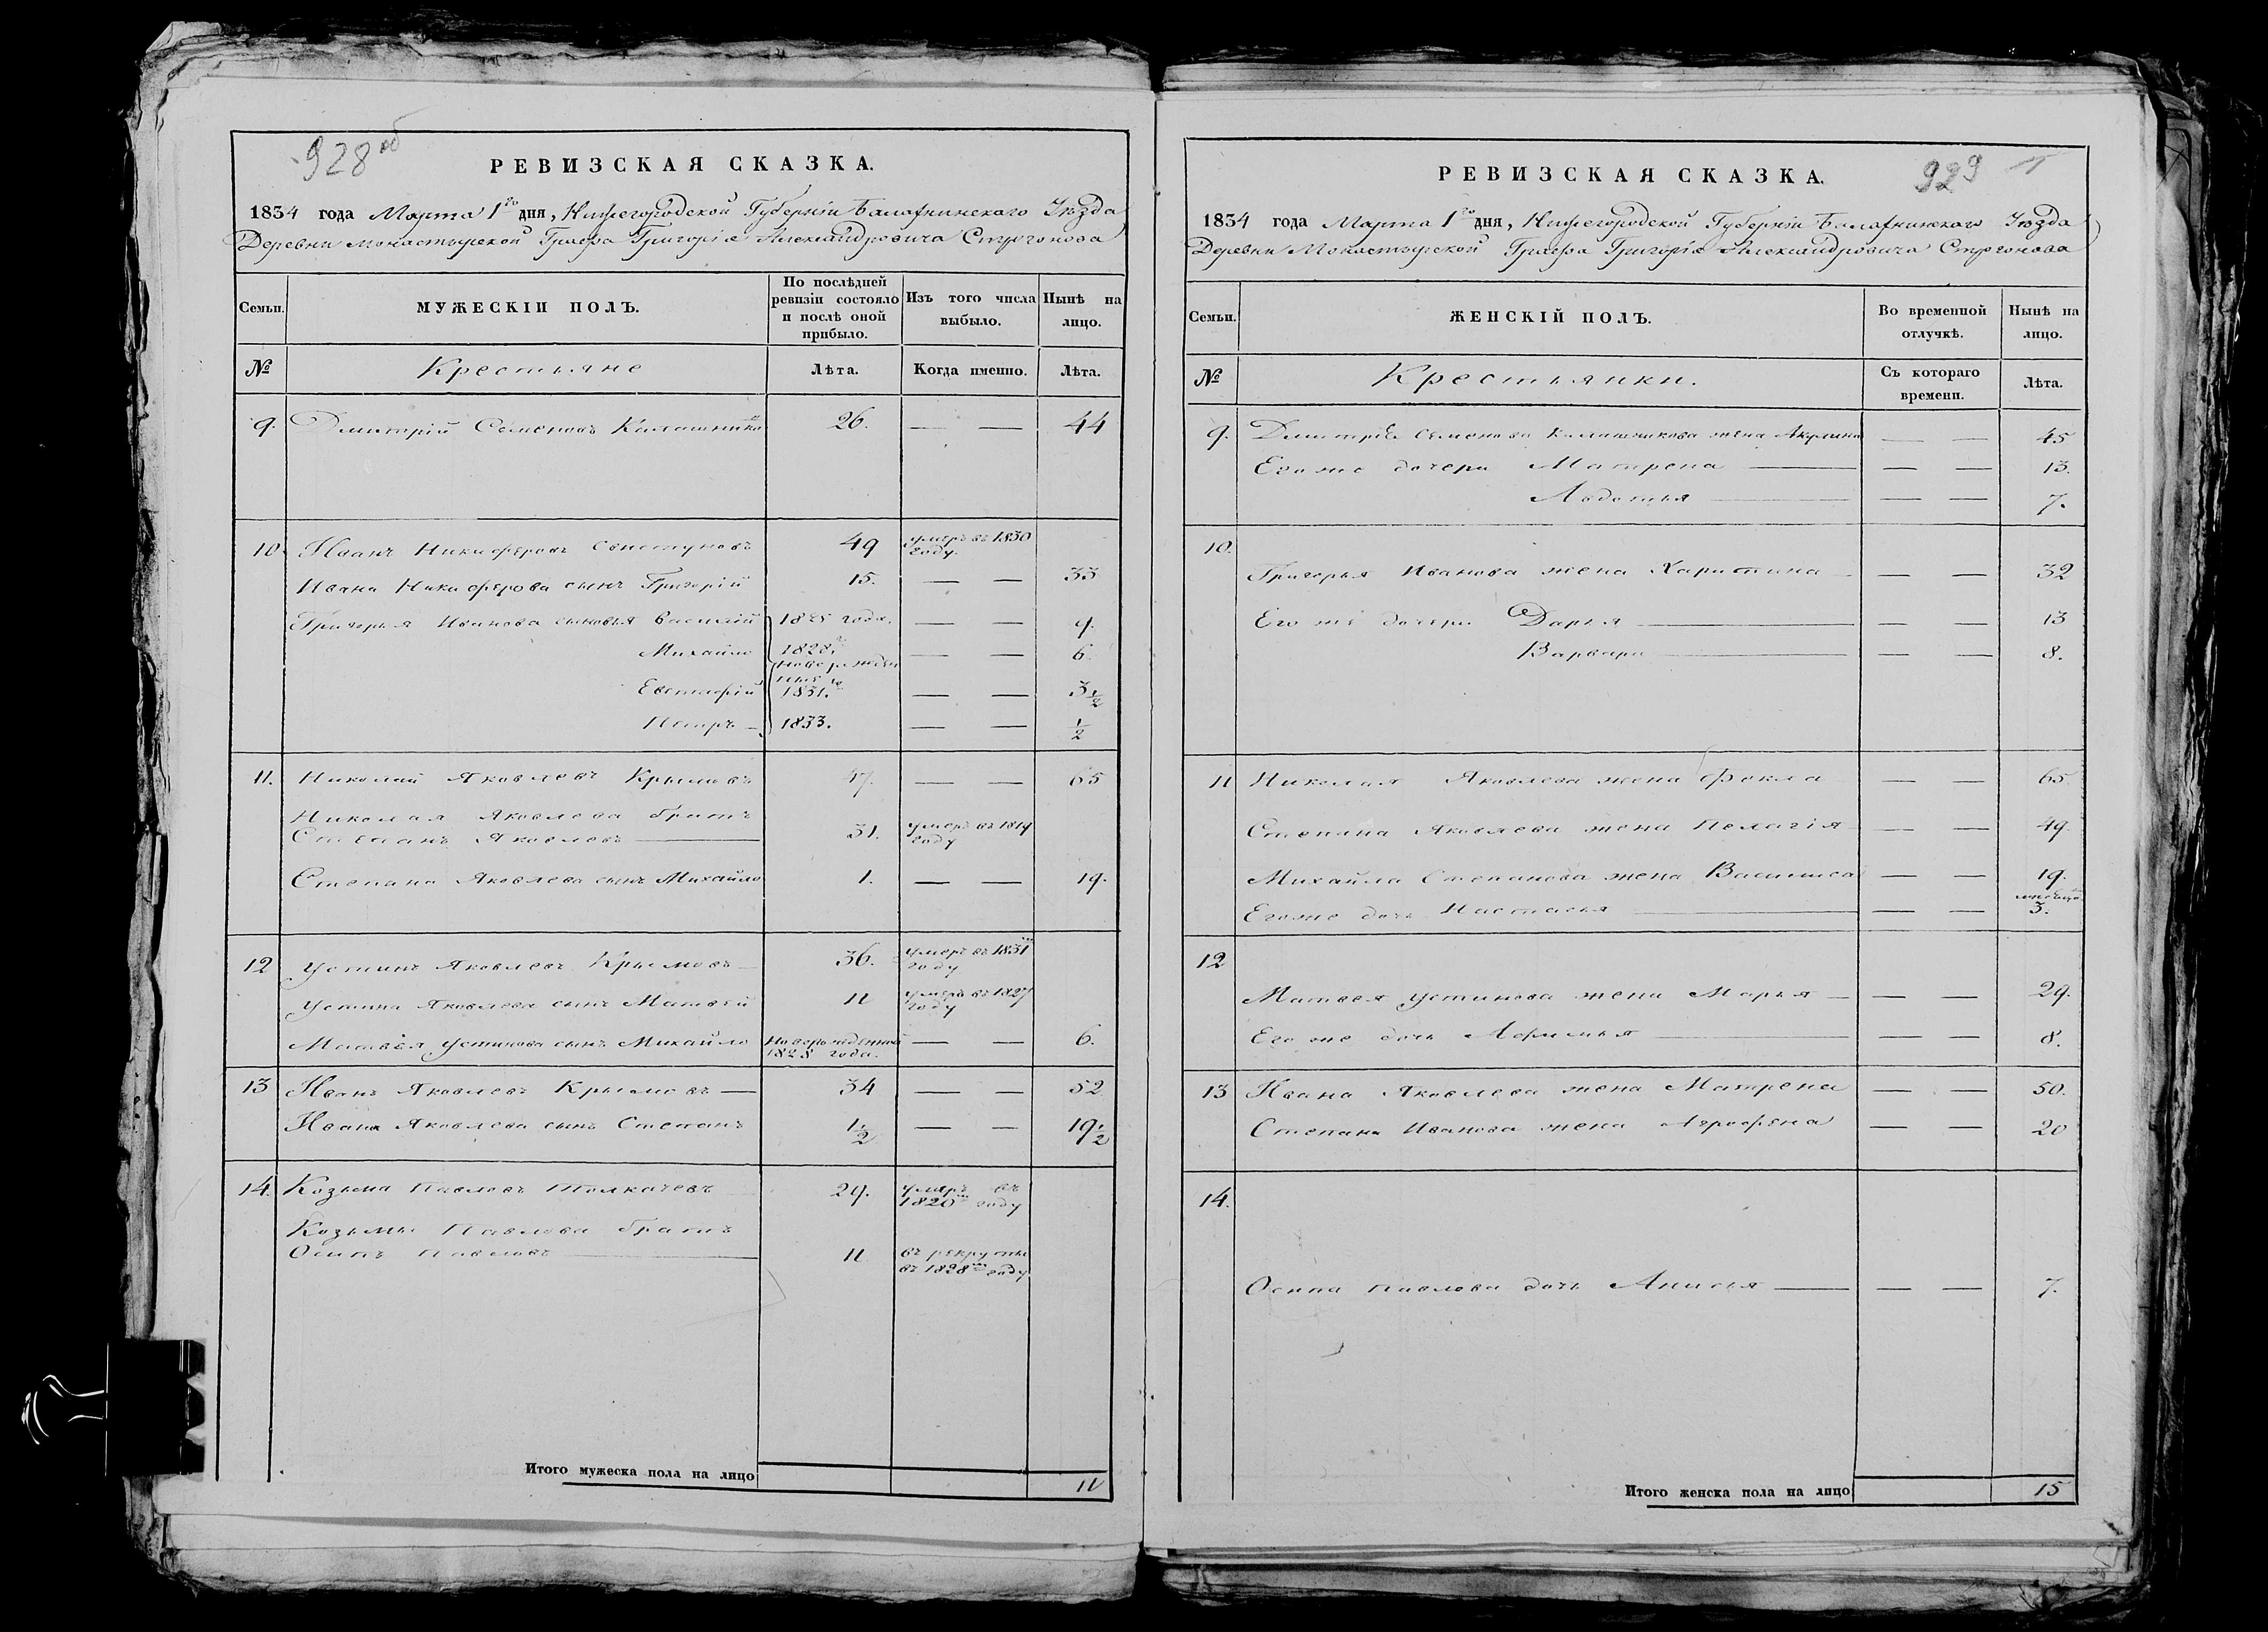 928 об
РЕВИЗСКАЯ СКАЗКА.
1834 года Марта 1го дня, Нижегородской Губерніи Балахнинскаго Уѣзда
Деревни Монастырской Графа Григорія Александровича Строгонова
Семьи. МУЖЕСКІЙ ПОЛЪ. По послѣдней ревизіи состояло и послѣ оной прибыло. Изъ того числа выбыло. Нынѣ на лицо.
№ Крестьяне Лѣта. Когда именно. Лѣта.
9. Дмитрій Семеновъ Калашниковъ 26. — — 44
10. Иванъ Никифоровъ Свистуновъ 49 умеръ въ 1830 году.
Ивана Никифорова сынъ Григорій 15. — — 33
Григорья Иванова сыновья Василій 1825 года. — — 9.
Михайло 1828го новорожденные — — 6.
Евстафій 1831го — — 3 1/2
Петръ — 1833. — — 1/2
11. Николай Яковлевъ Крымовъ 47. — — 65
Николая Яковлева братъ
Степанъ Яковлевъ — 31. умеръ въ 1819 году
Степана Яковлева сынъ Михайло 1. — — 19.
12 Устинъ Яковлевъ Крымовъ — 36. умеръ въ 1831м году
Устина Яковлева сынъ Матвей 11 умеръ въ 1827 году
Матвея Устинова сынъ Михайло Новорожденной 1828 года. — — 6.
13 Иванъ Яковлевъ Крымовъ — 34 — — 52
Ивана Яковлева сынъ Степанъ 1 1/2 — — 19 1/2
14. Козьма Павловъ Толкачевъ 29. умеръ въ 1820м году
Козьмы Павлова братъ
Осипъ Павловъ — 11 въ рекруты въ 1828м году
Итого мужеска пола на лицо 11
929
РЕВИЗСКАЯ СКАЗКА.
1834 года Марта 1го дня, Нижегородской Губерніи Балахнинскаго Уѣзда
Деревни Монастырской Графа Григорія Александровича Строгонова
Семьи. ЖЕНСКІЙ ПОЛЪ. Во временной отлучкѣ. Нынѣ на лицо.
№ Крестьянки. Съ котораго времени. Лѣта.
9. Дмитрія Семенова Калашникова жена Акулина — — 45
Его же дочери Матрена — — — 13.
Авдотья — — — 7.
10.
Григорья Иванова жена Харитина — — — 32
Его же дочери Дарья — — — 13
Варвара — — — 8.
11 Николая Яковлева жена Фекла — — 65.
Степана Яковлева жена Пелагія — — 49.
Михайла Степанова жена Василиса — — 19.
Его же дочь Настасья — — — мѣсяца 3.
12
Матвея Устинова жена Марья — — — 29.
Его же дочь Афимья — — — 8.
13 Ивана Яковлева жена Матрена — — 50.
Степана Иванова жена Аграфена — — 20
14.
Осипа Павлова дочь Анисья — — — 7.
Итого женска пола на лицо 15